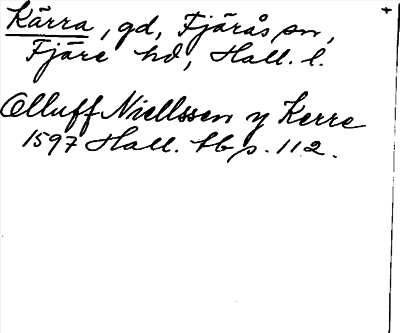 Kärra, gd, Fjärås sn,
Fjäre hd, Hall. l.
Olluff Niellssen y Kerre
1597 Hall. tb p. 112.